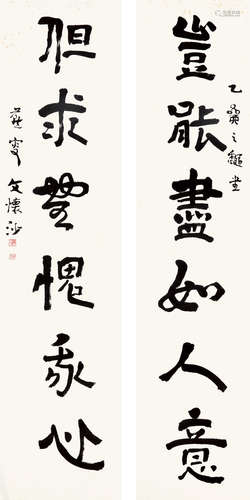 豈能盡如人意
乙
但求無愧我心
燕叟文懷沙